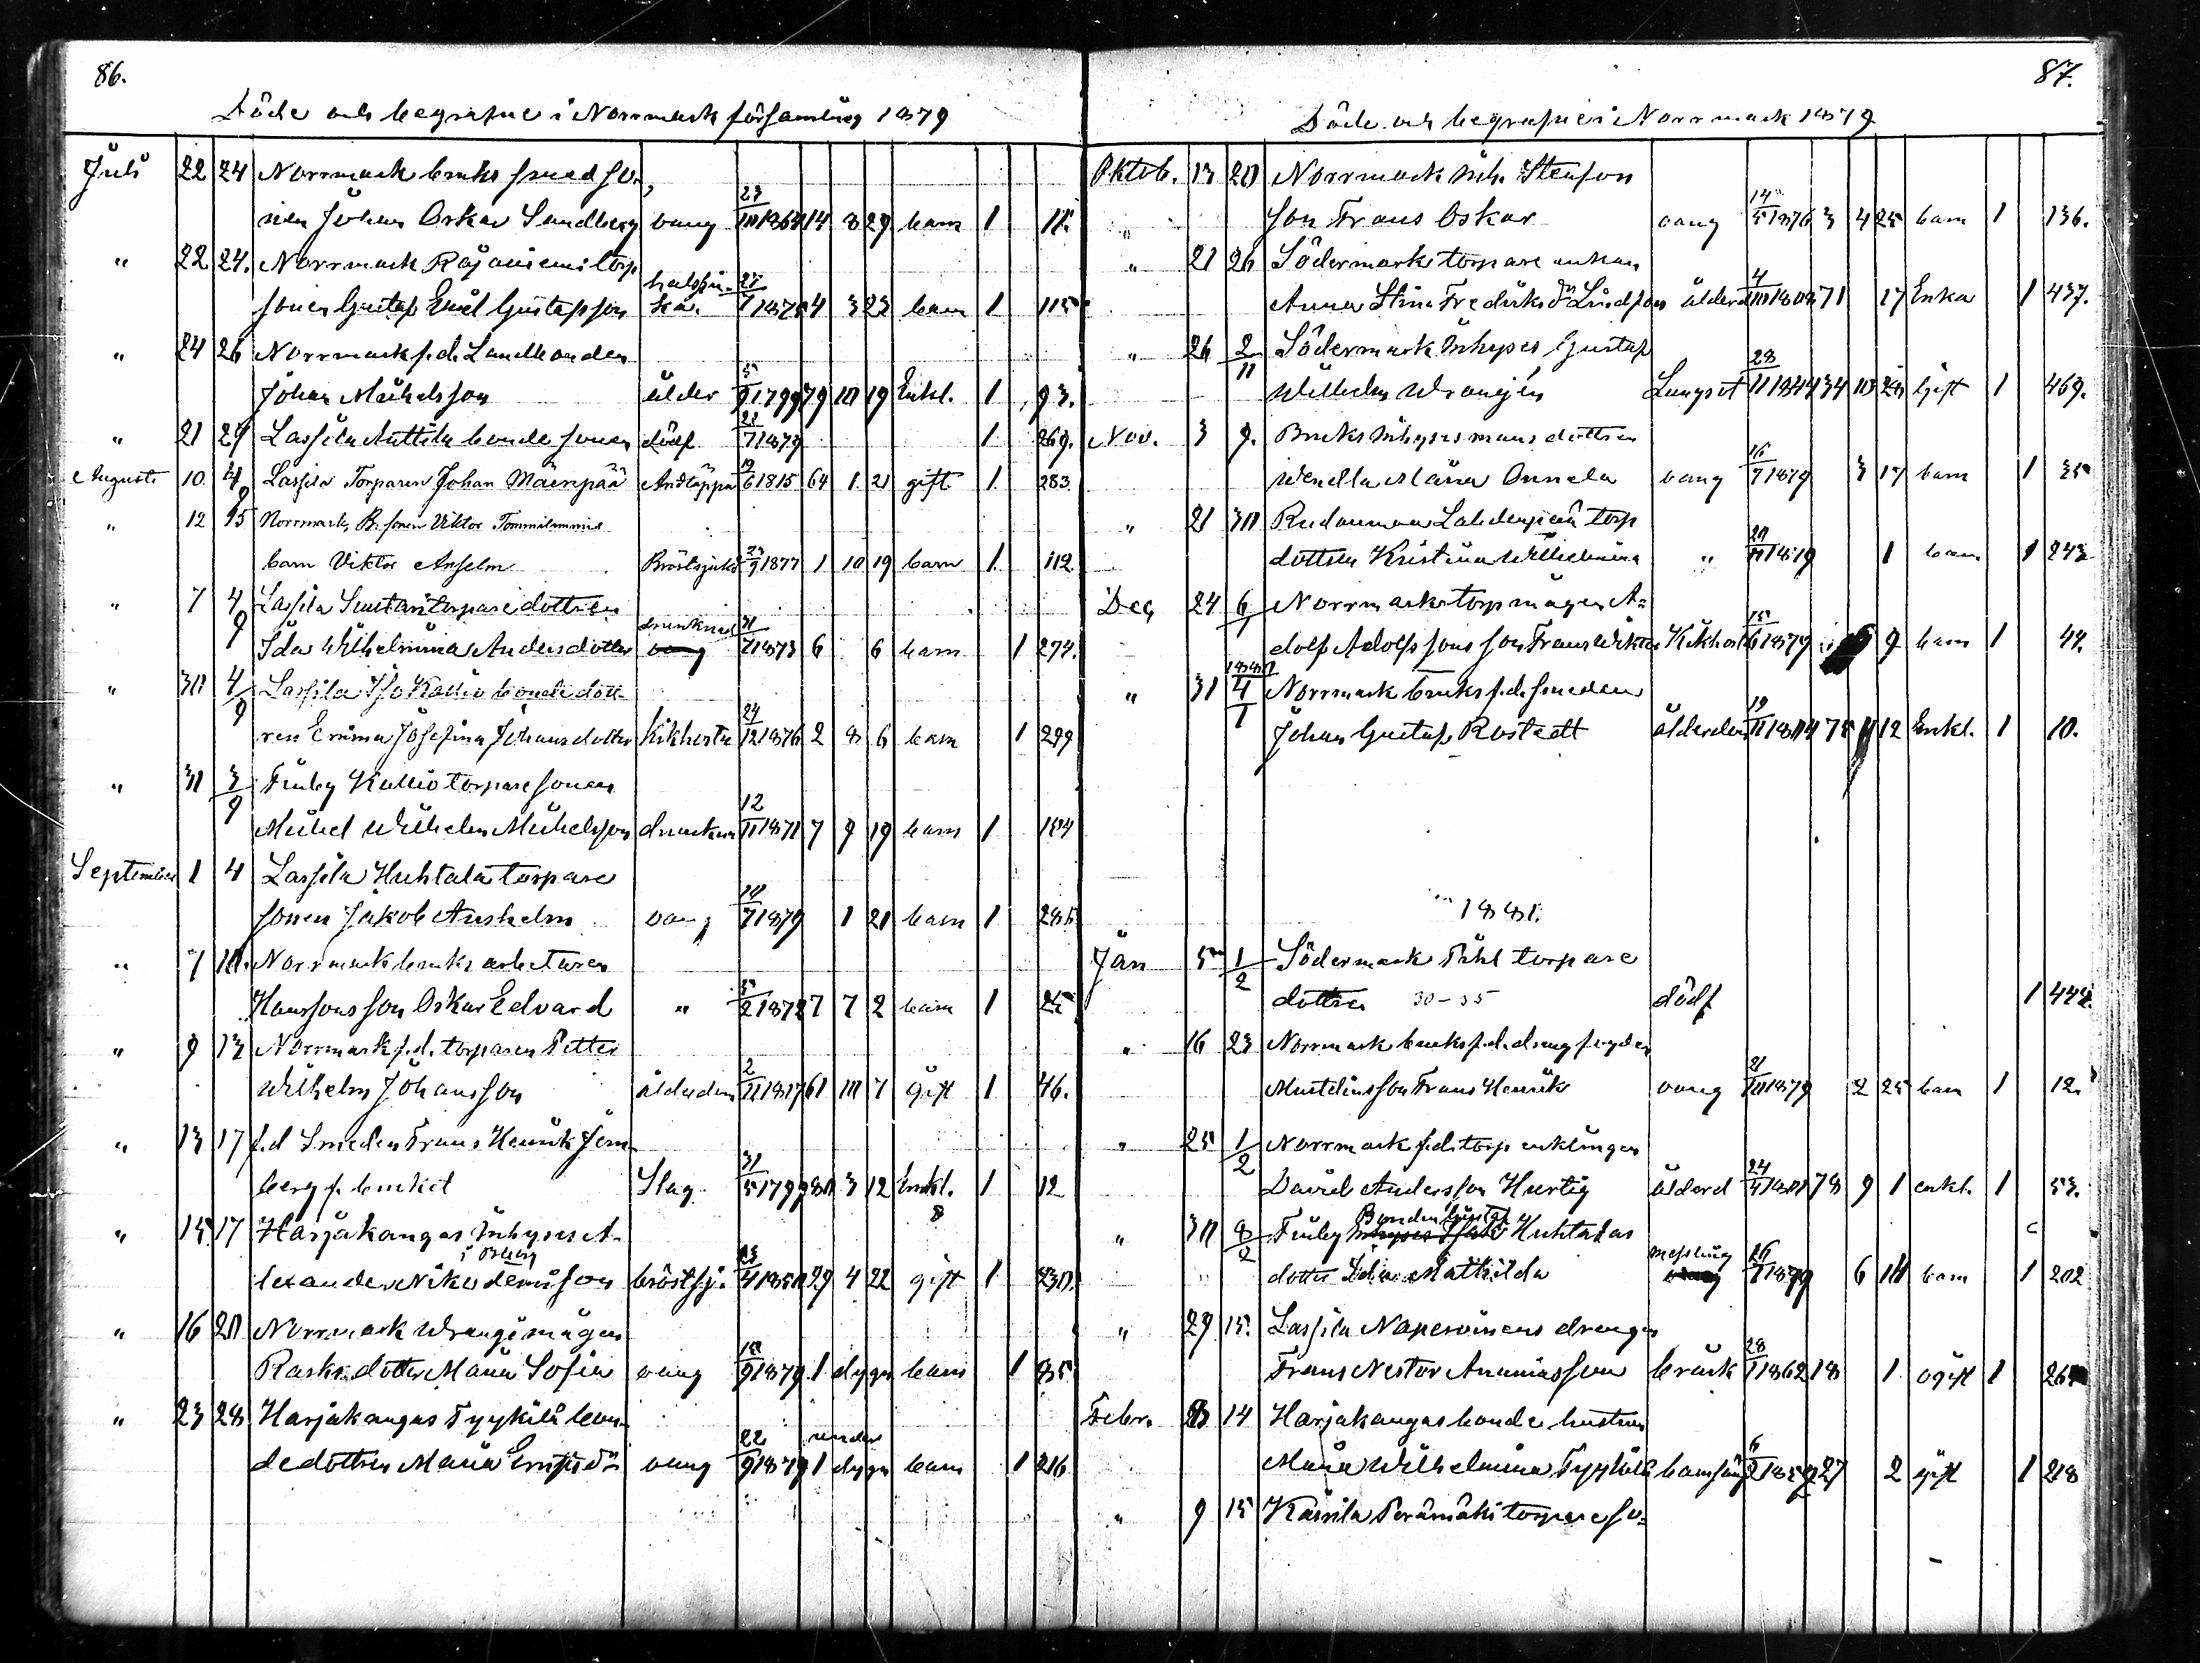 86.
Döde och begrafne i Norrmark församling 1879
Juli 22 24 Norrmark bruks smed so-
nen Johan Oskar Sandberg oang 14 8 29 barn 1 11.
" 22 24. Norrmark torp
sonen Gustaf Emil Gustafsson 4 3 23 barn 1 115
" 24 26 Norrmark f.d. Landbonden
Johan Mikelsson ålder 1799 79 10 19 Enkl. 1 93.
" 21 29 Lassila Anttila bonde sonen dödf 1879 1 269.
Augusti 10 Lassila Torparen Johan Mäenpää Andtäppa 19/6 1815 64 1 21 gift 1 283
" 12 15 Norrmark B. sonen Viktor
barn Viktor Anselm 1877 1 10 19 barn 1 112
" 7 4/9 Lassila torpare dottren
drunknad
Ida Wilhelmina Andersdotter 1873 6 6 barn 1 274.
" 30 4/9 Lassila Iso Kallio bonde dott-
ren Emma Josefina Johansdotter Kikhosta 24/12 1876 2 8 6 barn 1 299
" 31 3/9 Finby Kallio torpare sonen
Mikel Wilhelm Mikelsson drunkn 12/11 1871 7 9 19 barn 1
September 1 4 Lassila Huhtala torpare
sonen Jakob Anshelm oang 10/7 1879 1 21 barn 1
" 7 10. Norrmark bruks arbetaren
Hanssons son Oskar Edvard " 5/2 1872 7 7 2 barn 1 25
" 9 13 Norrmark f.d. torparen Petter
Wilhelm Johansson ålderdom 2/11 1817 61 10 7 gift 1 46.
" 13 17 f.d Smeden Frans Henrik Jern
berg f. bruket Slag 31/5 1799 80 3 12 Enkl. 1 12
8
" 15 17 Harjakangas Inhyses A-
lexander Nikodemsson bröstsj. 23/4 1850 29 4 22 gift 1 230.
" 16 20 Norrmark mågen
Rasks dotter Maria Sofia oang 15/9 1879 1 dygn barn 1 85
" 23 28 Harjakangas Tyykilä bon-
under
dedottren Maria oang 22/9 1879 1 dygn barn 1 216
87.
Döde och begrafne i Norrmark 1879
Oktob. 13 20 Norrmark Inh. Stenson
" son Frans Oskar oang 14/5 1876 3 4 25 barn 1 136.
" 21 26 Södermark torpare enkan
Anna Stina Fredriks Lindfors ålderd 71 17 Enka 1 437.
" 26 2/11 Södermark Inhyses Gustaf
Wilhelm Wrangén Lungsot 28/11 1844 34 10 28 Gift 1 469.
Nov. 3 9. Bruks Inhysesmans dottren
Wendla Maria Onnela oang 16/7 1879 3 17 barn 1 35
" 21 30 Rudanmaa Lahdenpää torp
dottren Kristina Wilhelmina " 20/11 1879 1 barn 1 243
Dec 24 6/1 Norrmark torp mågen A-
dolf Adolfssons son Frans Wiktor Kikhosta 15/6 1879 9 barn 1 44.
1880
" 31 4/1 Norrmark bruks f.d. smeden
Johan Gustaf Rostedt ålderdom 19/11 1804 12 Enkl. 1 10.
Jan 5 1/2 Södermark Påhl torpare
dottren 30-35 dödf 1 444.
" 16 23 Norrmark bruks f.d. drengfogden
son Frans Henrik oang 21/10 1879 2 25 barn 1 12.
" 25 1/2 Norrmark f.d. torp enklingen
David Andersson Hurtig ålderd 78 9 1 enkl. 1 53.
Bonden Gustaf
" 30 8/2 Finby Huhtalas
dotter Ida Mathilda messling 1879 6 14 barn 1 202
" 29 15. Lassila drengen
Frans Nestor Ananiasson bråck 28/1 1862 18 1 ogift 1
Febr. 8 14 Harjakangas bonde hustrun
Maria Wilhelmina Tyykilä barnsäng 27 2 gift 1 218
" 9 15 Kärila Perämäki torpare so-